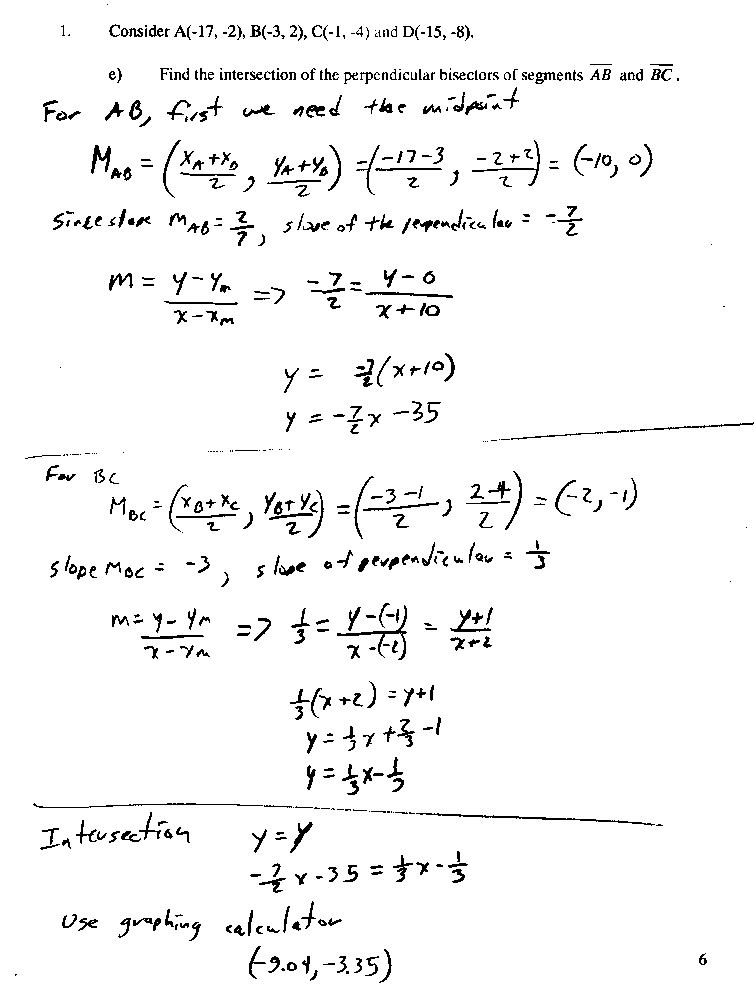 1. Consider A(-17, -2), B(-3, 2), C(-1, -4) and D(-15, -8).
e) Find the intersection of the perpendicular bisectors of segments A̅B̅ and B̅C̅.
For AB, first we need the midpoint
M_AB = ((x_A + x_B)/2, (y_A + y_B)/2) = ((-17-3)/2, (-2+2)/2) = (-10, 0)
Since slope m_AB = 2/7, slope of the perpendicular = -7/2
m = (y - y_m)/(x - x_m) => -7/2 = (y - 0)/(x + 10)
y = -7/2(x+10)
y = -7/2x - 35
For BC
M_BC = ((x_B + x_C)/2, (y_B + y_C)/2) = ((-3-1)/2, (2-4)/2) = (-2, -1)
slope m_BC = -3, slope of perpendicular = 1/3
m = (y - y_m)/(x - x_m) => 1/3 = (y-(-1))/(x-(-2)) = (y+1)/(x+2)
1/3(x+2) = y+1
y = 1/3x + 2/3 - 1
y = 1/3x - 1/3
Intersection y = y
-7/2x - 35 = 1/3x - 1/3
Use graphing calculator
(-9.04, -3.35)
6